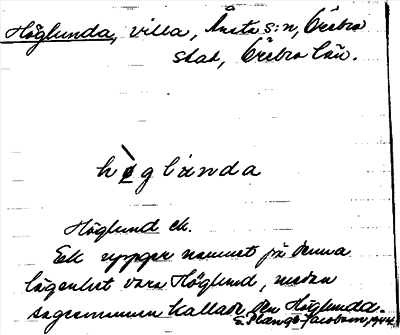 Höglunda, villa, Ånsta s:n, Örebro
stad, Örebro län.
hòglánda
Höglund ek.
Ek uppger namnet på denna
lägenhet vara Höglund, medan
sagesmannen kallade den Höglunda.
S. Plange-Jacobson, 1944.